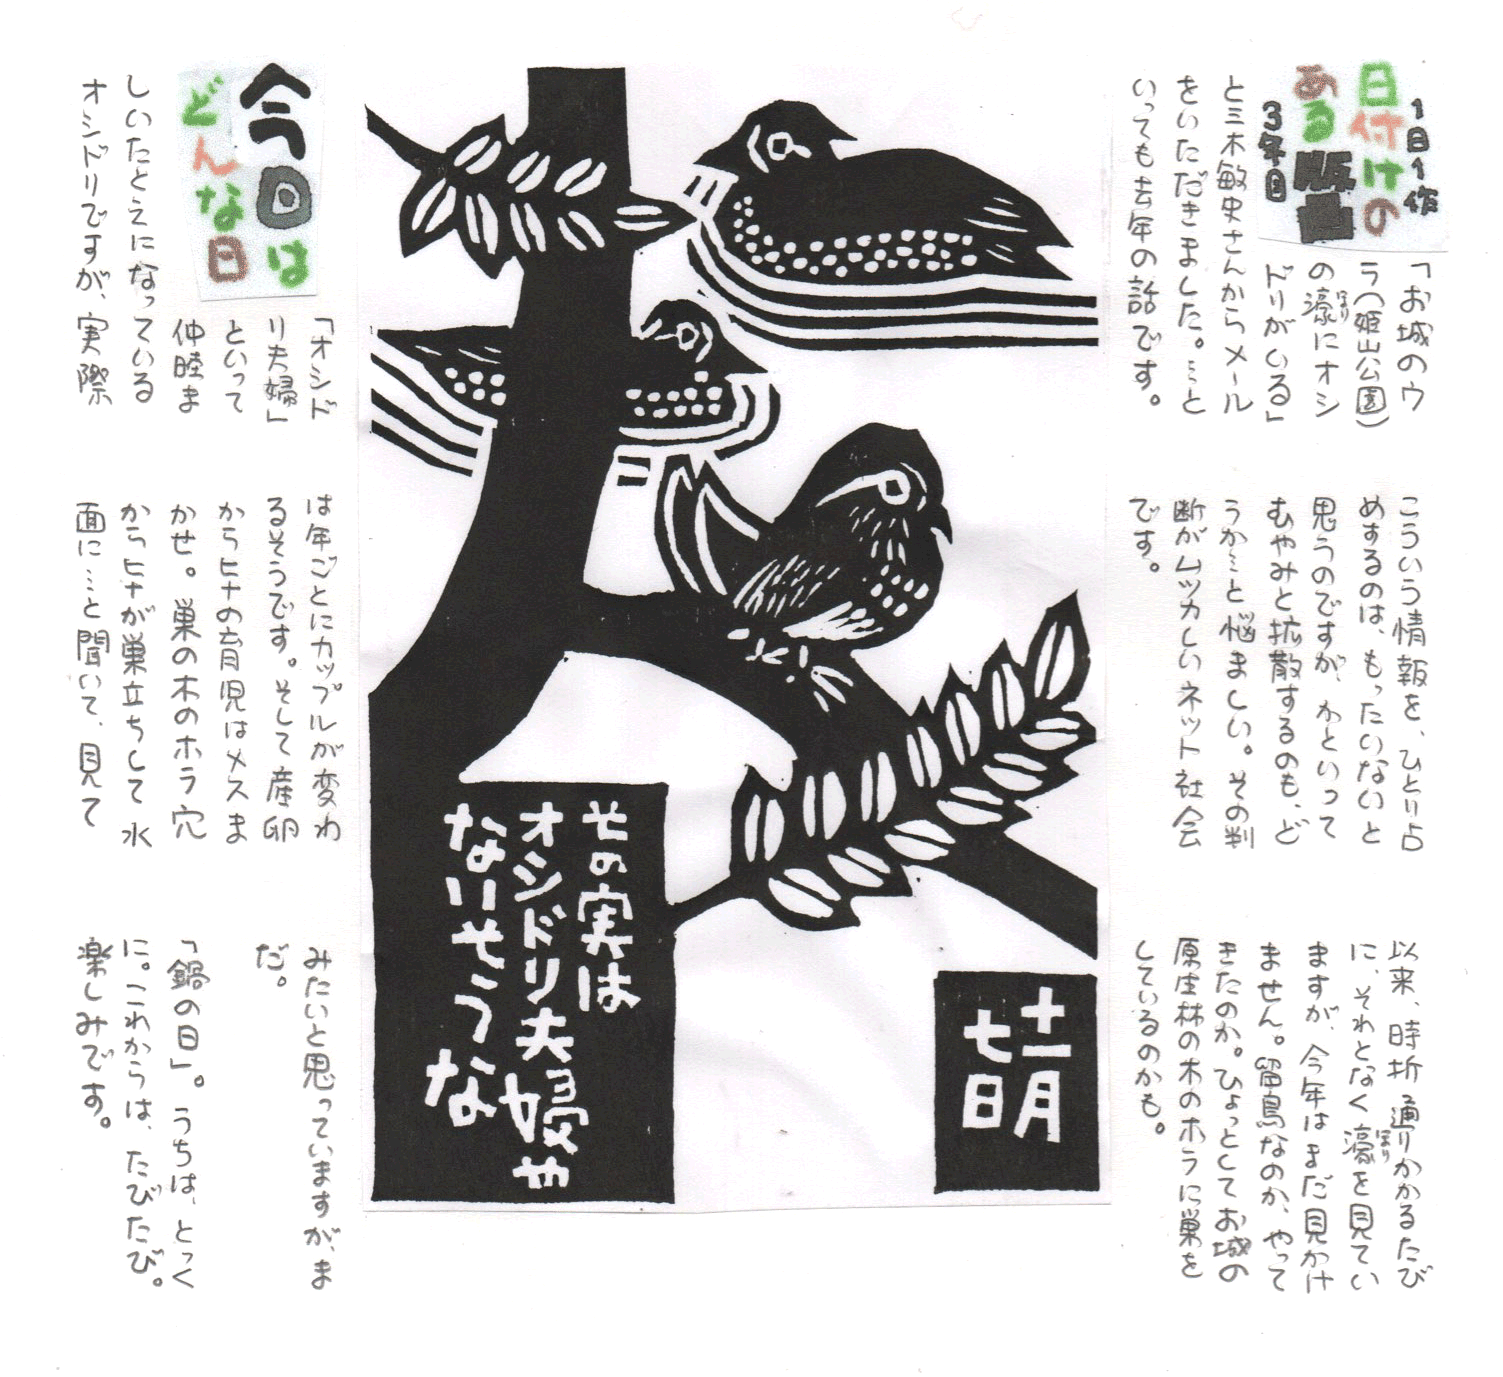 1日1作
日付けの
ある版画
3年目
「お城のウ
ラ(姫山公園)
の濠にオシ
ほり
ドリがいる」
と三木敏史さんからメール
をいただきました。…と
いっても去年の話です。
こういう情報を、ひとり占
めするのは、もったいないと
思うのですが、かといって
むやみと拡散するのも、ど
うか…と悩ましい。その判
断がムツカしいネット社会
です。
以来、時折通りかかるたび
に、それとなく濠を見てい
ほり
ますが、今年はまだ見かけ
ません。留鳥なのか、やって
きたのか。ひょっとしてお城の
原生林の木のホラに巣を
しているのかも。
十一月
七日
その実は
オシドリ夫婦や
ないそうな
今日は
どんな日
「オシド
リ夫婦」
といって
仲睦ま
しいたとえになっている
オシドリですが、実際
は年ごとにカップルが変わ
るそうです。そして産卵
からヒナの育児はメスま
かせ。巣の木のホラ穴
からヒナが巣立ちして水
面に…と聞いて、見て
みたいと思っていますが、ま
だ。
「鍋の日」。うちは、とっく
に。これからは、たびたび。
楽しみです。